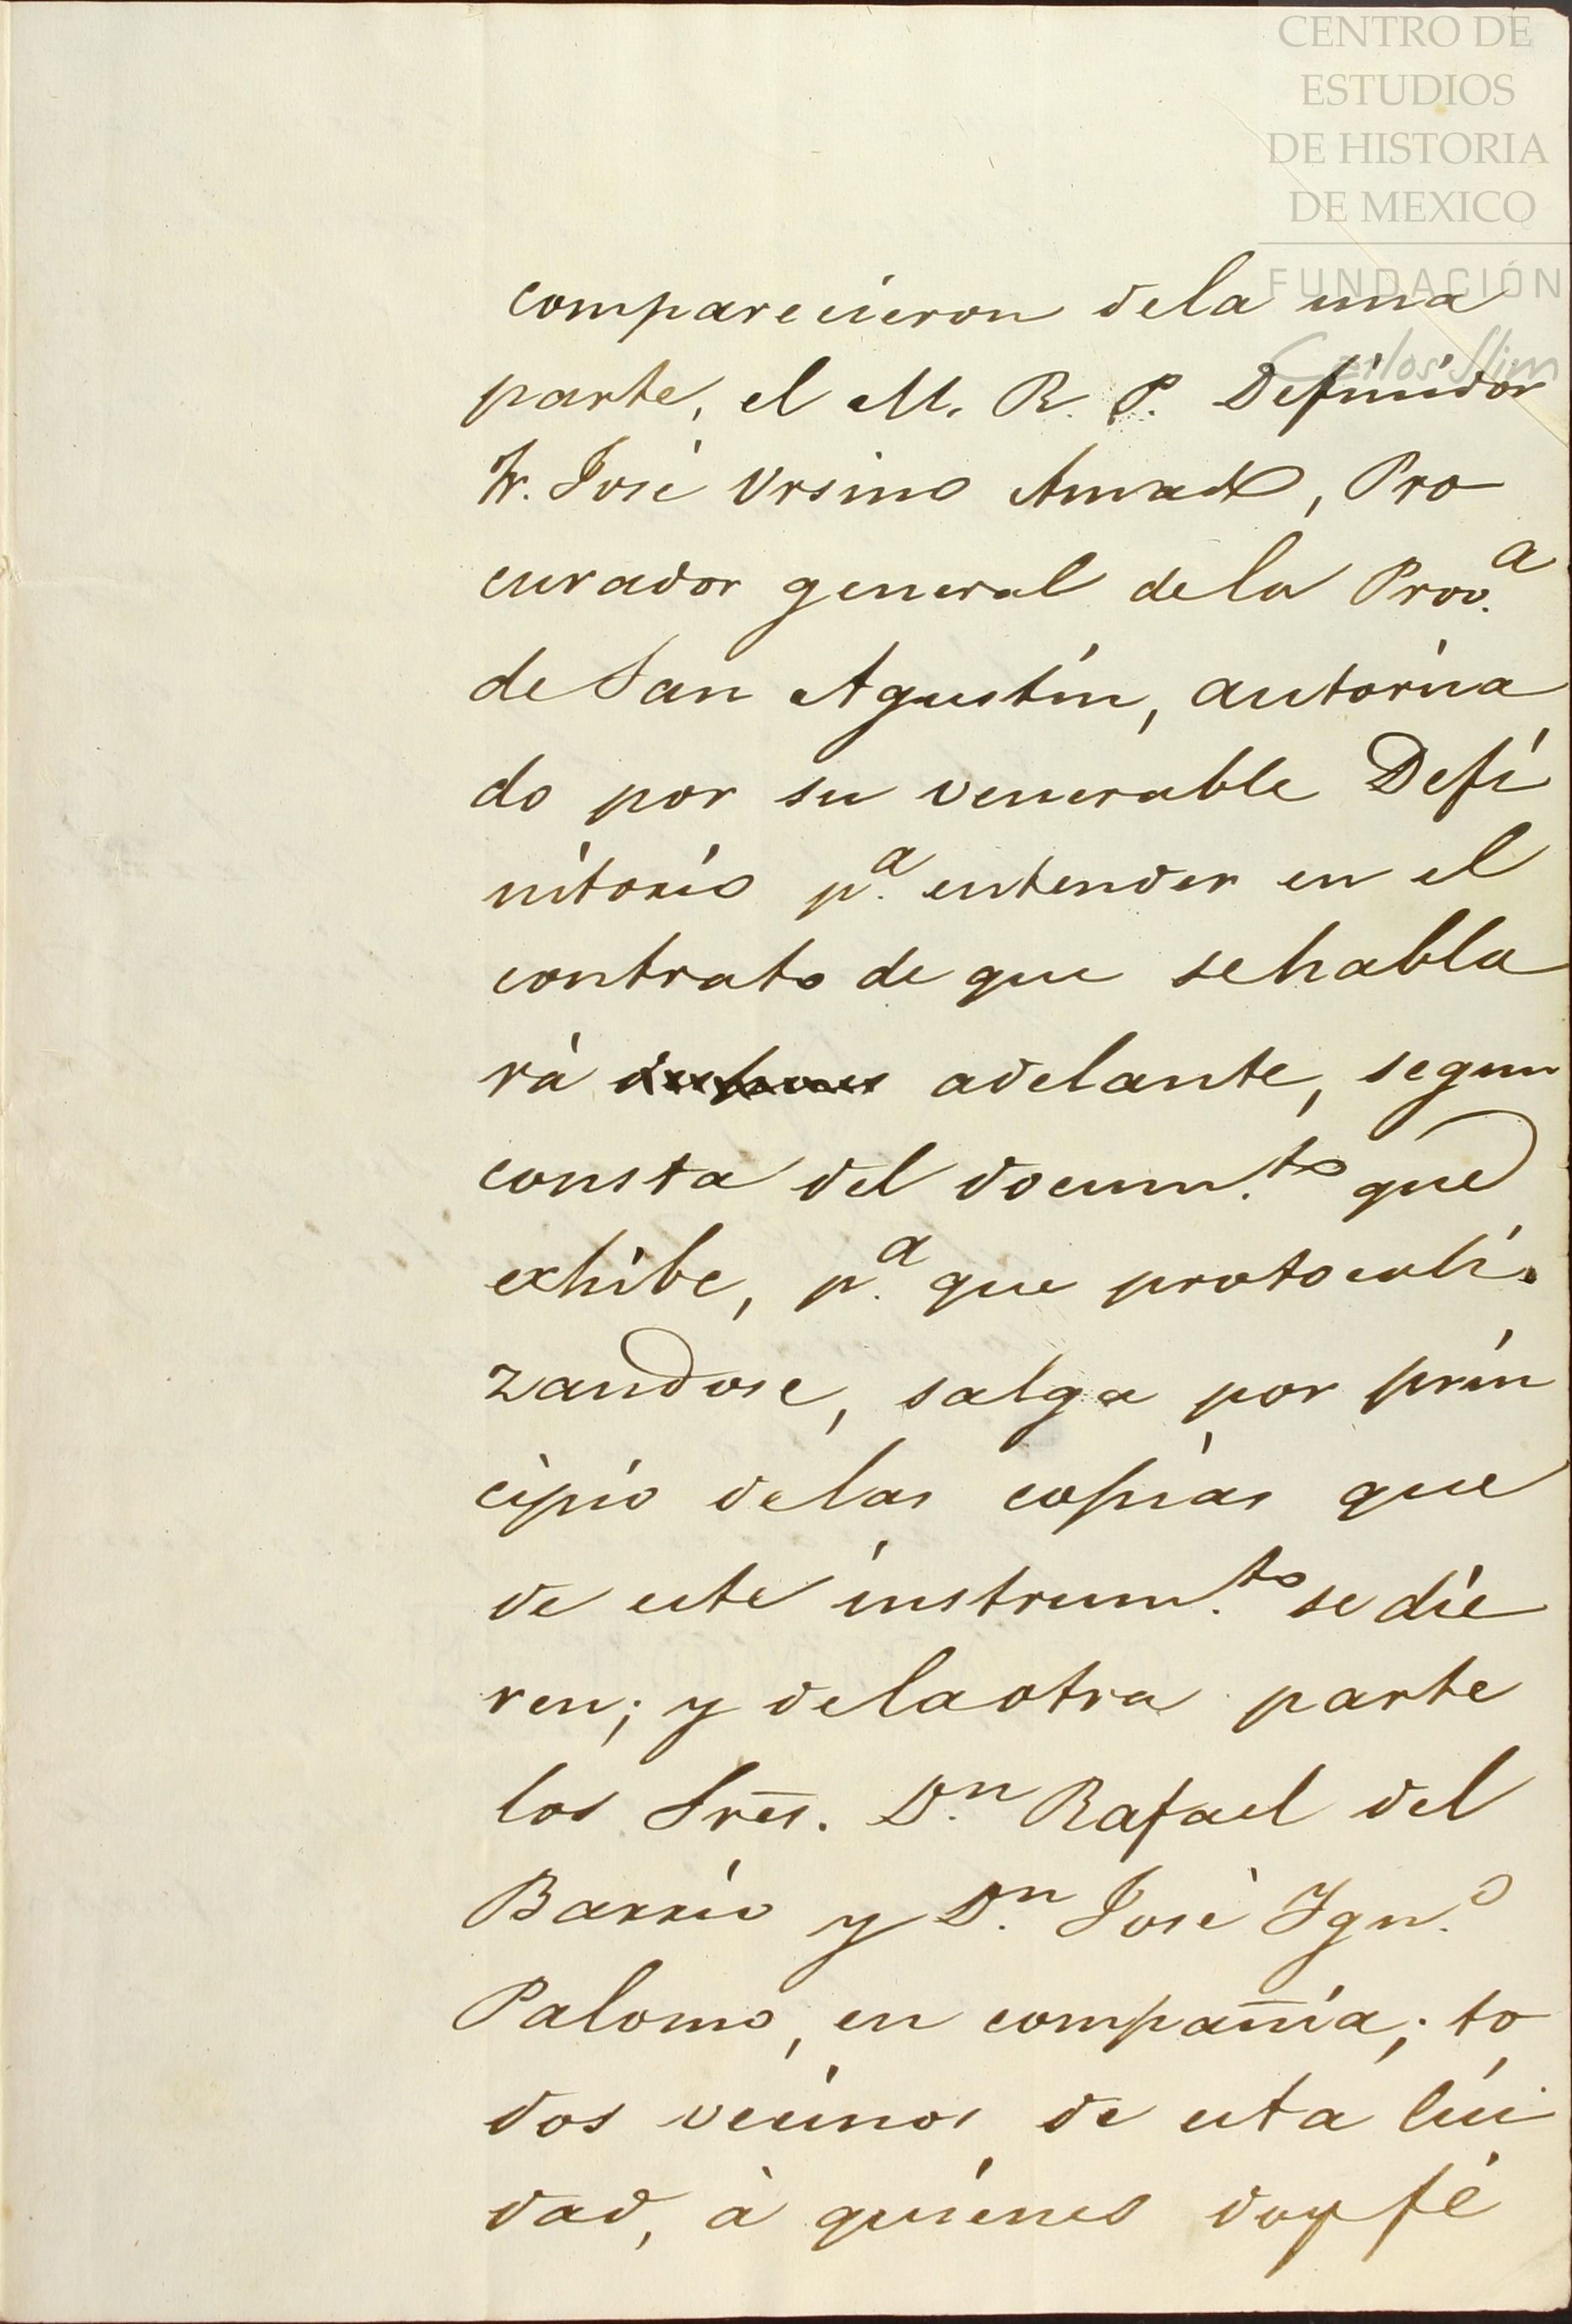 CENTRO DE
ESTUDIOS
DE HISTORIA
DE MEXICO
FUNDACIÓN
Carlos Slim
comparecieron dela una
parte, el M. R. P. Definidor
Fr. José Ursino Amado, Pro
curador general dela Prov.ª
de San Agustin, autoriza
do por su venerable Defi
nitorio p.ª entender en el
contrato de que sehabla
rá adelante, segun
consta del docum.to que
exhibe, p.ª que protocoli-
zandose, salga por prin
cipio delas copias que
de este instrum.to se die
ren; y delaotra parte
los Sres. D.n Rafael del
Barrio y D.n José Ygn.o
Palomo, en compañia; to
dos vecinos de esta Ciu
dad, à quienes doy fé